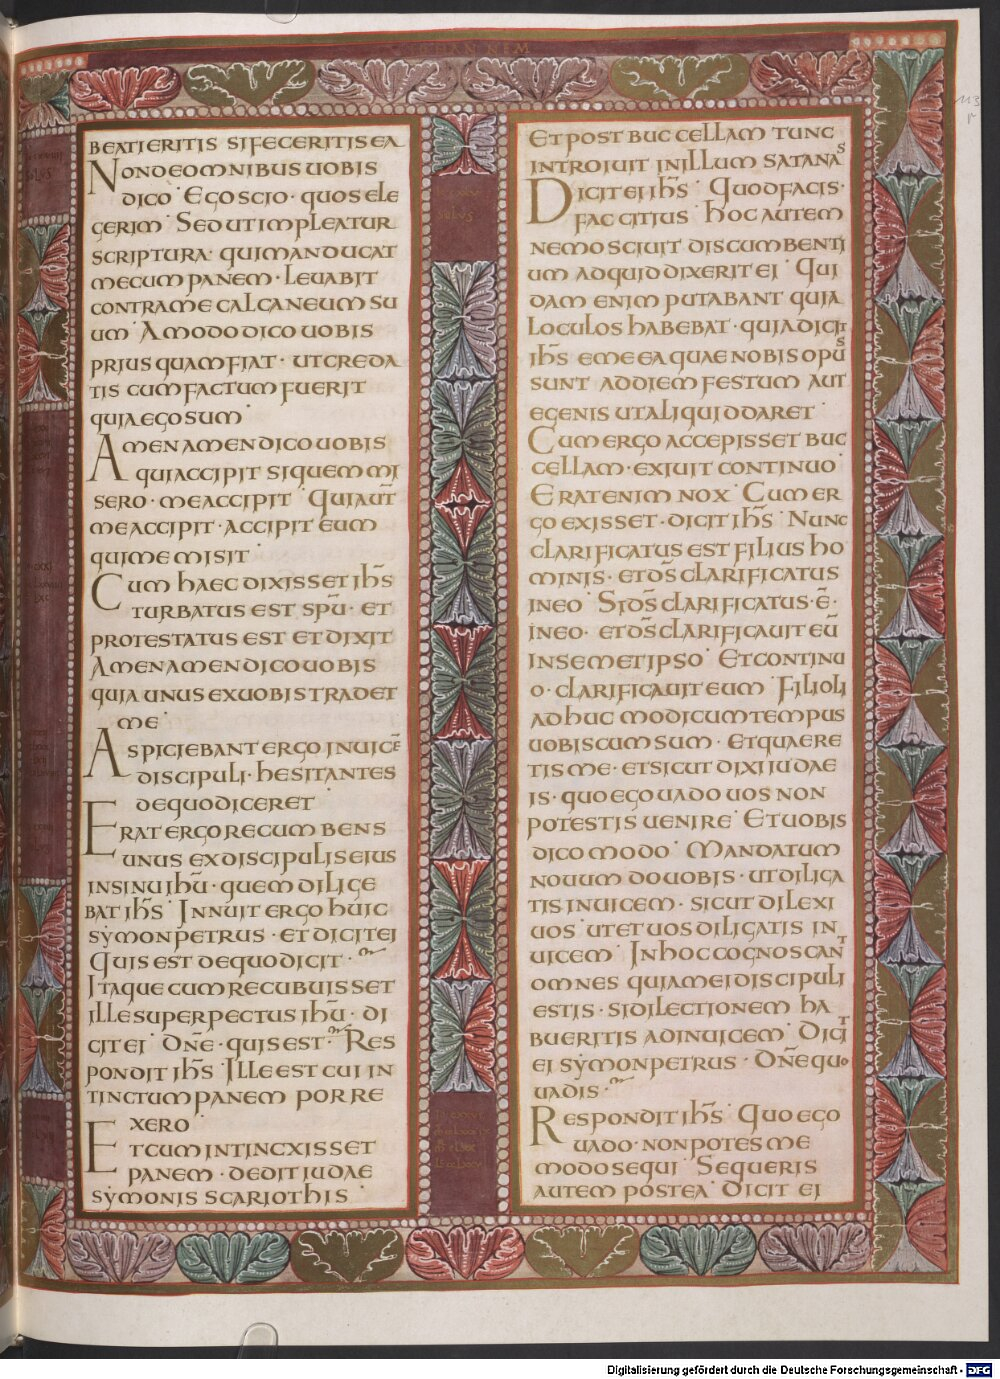 BEATI ERITIS SI FECERITIS EA
NON DE OMNIBUS UOBIS
DICO · EGO SCIO · QUOS ELE
GERIM · SED UT IMPLEATUR
SCRIPTURA · QUI MANDUCAT
MECUM PANEM · LEUABIT
CONTRA ME CALCANEUM SU
UM · AMODO DICO UOBIS
PRIUSQUAM FIAT · UT CREDA
TIS CUM FACTUM FUERIT
QUIA EGO SUM ·
AMEN AMEN DICO UOBIS
QUI ACCIPIT SI QUEM MI
SERO · ME ACCIPIT · QUI AUT̄
ME ACCIPIT · ACCIPIT EUM
QUI ME MISIT ·
CUM HAEC DIXISSET IHS̄
TURBATUS EST SPŪ · ET
PROTESTATUS EST ET DIXIT
AMEN AMEN DICO UOBIS
QUIA UNUS EX UOBIS TRADET
ME ·
ASPICIEBANT ERGO INUICĒ
DISCIPULI · HESITANTES
DE QUO DICERET ·
ERAT ERGO RECUMBENS
UNUS EX DISCIPULIS EIUS
IN SINU IHŪ · QUEM DILIGE
BAT IHS̄ · INNUIT ERGO HUIC
SYMON PETRUS · ET DICIT EI
QUIS EST DE QUO DICIT ·
ITAQUE CUM RECUBUISSET
ILLE SUPER PECTUS IHŪ · DI
CIT EI · DN̄E · QUIS EST · RES
PONDIT IHS̄ · ILLE EST CUI IN
TINCTUM PANEM PORRE
XERO ·
ET CUM INTINCXISSET
PANEM · DEDIT IUDAE
SYMONIS SCARIOTHIS ·
ET POST BUCCELLAM TUNC
INTROIUIT IN ILLUM SATANAS
DICIT EI IHS̄ · QUOD FACIS ·
FAC CITIUS · HOC AUTEM
NEMO SCIUIT DISCUMBENTI
UM AD QUID DIXERIT EI · QUI
DAM ENIM PUTABANT QUIA
LOCULOS HABEBAT · QUIA DICIT
IHS̄ EME EA QUAE NOBIS OPUS
SUNT AD DIEM FESTUM AUT
EGENIS UT ALIQUID DARET ·
CUM ERGO ACCEPISSET BUC
CELLAM · EXIUIT CONTINUO ·
ERAT ENIM NOX · CUM ER
GO EXISSET · DICIT IHS̄ · NUNC
CLARIFICATUS EST FILIUS HO
MINIS · ET DS̄ CLARIFICATUS
IN EO · SI DS̄ CLARIFICATUS · Ē ·
IN EO · ET DS̄ CLARIFICAUIT EŪ
IN SEMETIPSO · ET CONTINU
O · CLARIFICAUIT EUM · FILIOLI
ADHUC MODICUM TEMPUS
UOBISCUM SUM · ET QUAERE
TIS ME · ET SICUT DIXI IUDAE
IS · QUO EGO UADO UOS NON
POTESTIS UENIRE · ET UOBIS
DICO MODO · MANDATUM
NOUUM DO UOBIS · UT DILIGA
TIS INUICEM · SICUT DILEXI
UOS · UT ET UOS DILIGATIS IN
UICEM · IN HOC COGNOSCANT
OMNES QUIA MEI DISCIPULI
ESTIS · SI DILECTIONEM HA
BUERITIS AD INUICEM · DICIT
EI SYMON PETRUS · DN̄E QUO
UADIS ·
RESPONDIT IHS̄ · QUO EGO
UADO · NON POTES ME
MODO SEQUI · SEQUERIS
AUTEM POSTEA · DICIT EI
Digitalisierung gefördert durch die Deutsche Forschungsgemeinschaft - DFG